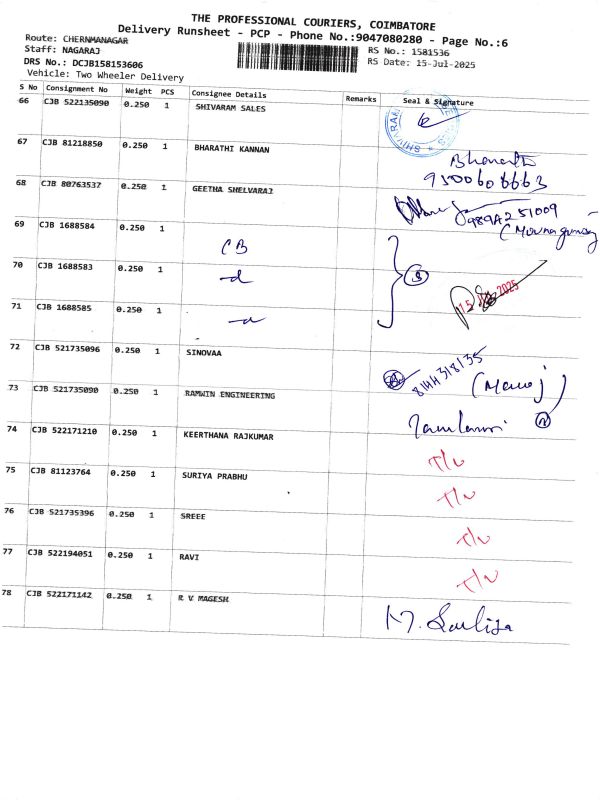 THE PROFESSIONAL COURIERS, COIMBATORE
Delivery Runsheet - PCP - Phone No.:9047080280 - Page No.:6
Route: CHERNMANAGAR
Staff: NAGARAJ
DRS No.: DCJB158153606
Vehicle: Two Wheeler Delivery
RS No.: 1581536
RS Date: 15-Jul-2025
S No Consignment No Weight PCS Consignee Details Remarks Seal & Signature
66 CJB 522135090 0.250 1 SHIVARAM SALES
67 CJB 81218850 0.250 1 BHARATHI KANNAN
9500606663
68 CJB 80763537 0.250 1 GEETHA SHELVARAJ
69 CJB 1688584 0.250 1 CB
70 CJB 1688583 0.250 1 -d
71 CJB 1688585 0.250 1 -d
72 CJB 521735096 0.250 1 SINOVAA
(Manoj)
73 CJB 521735090 0.250 1 RAMWIN ENGINEERING
74 CJB 522171210 0.250 1 KEERTHANA RAJKUMAR T/L
75 CJB 81123764 0.250 1 SURIYA PRABHU T/L
76 CJB 521735396 0.250 1 SREEE T/L
77 CJB 522194051 0.250 1 RAVI T/L
78 CJB 522171142 0.250 1 R V MAGESH